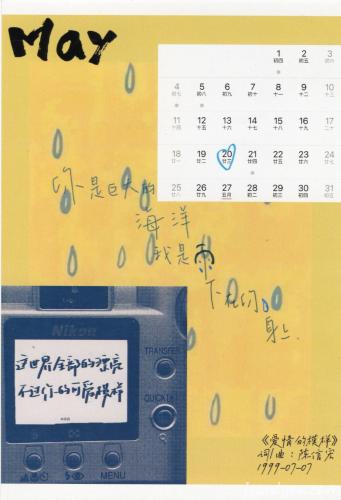 May
1 2 3
初四 初五 初六
4 5 6 7 8 9 10
初七 初八 初九 初十 十一 十二 十三
11 12 13 14 15 16 17
十四 十五 十六 十七 十八 十九 二十
18 19 20 21 22 23 24
廿一 廿二 廿三 廿四 廿五 廿六 廿七
25 26 27 28 29 30 31
廿八 廿九 五月 初二 初三 初四 初五
你是巨大的
海洋
我是雨
下在你
身上
Nikon
这世界全部的漂亮
不过你的可爱模样
TRANSFER
QUICK
MENU
《爱情的模样》
词/曲：陈信宏
1999-07-07